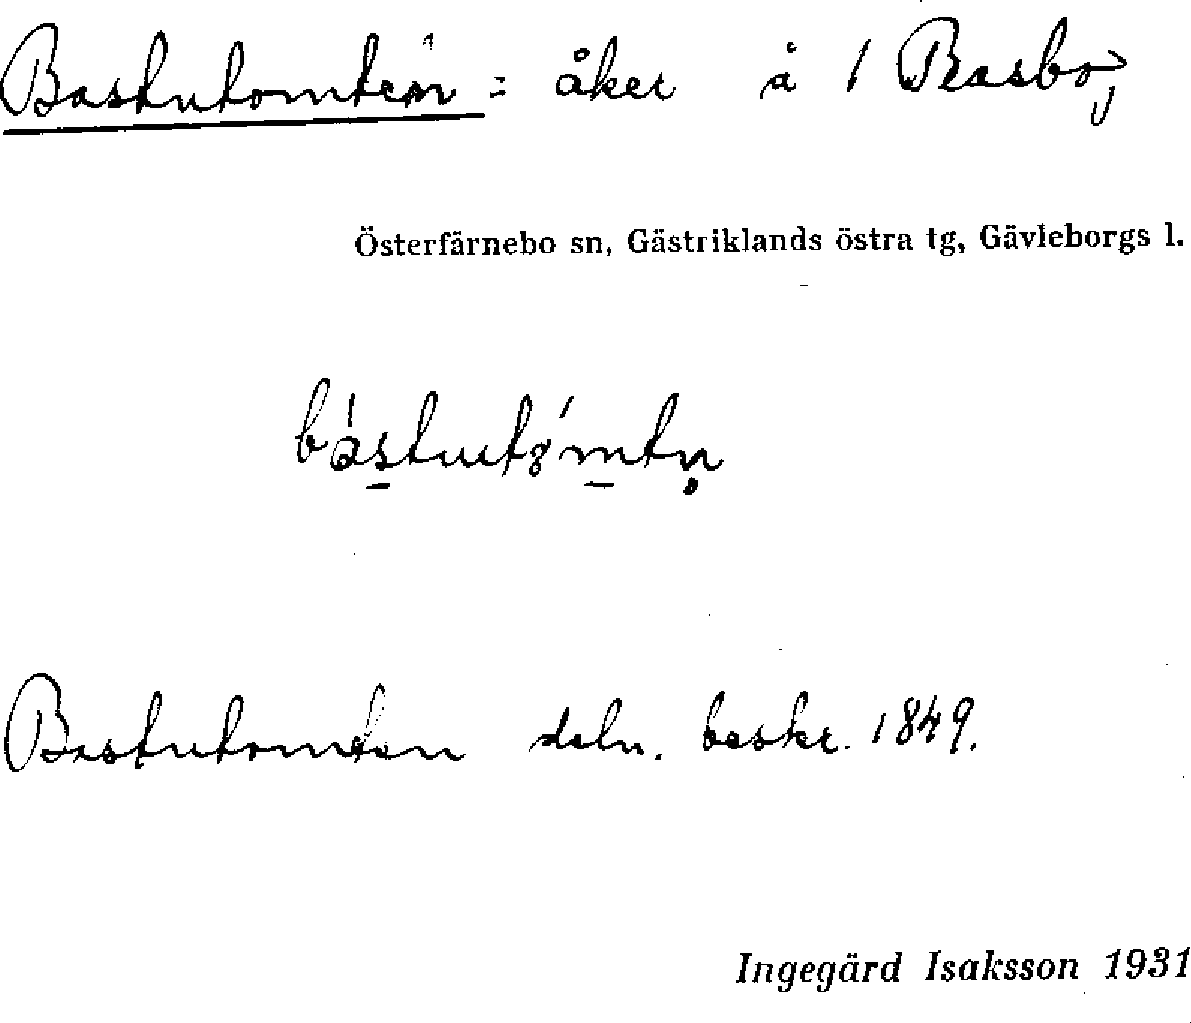 Bastutomten = åker å 1 Rasbo,
Österfärnebo sn, Gästriklands östra tg, Gävleborgs l.
Bastutomten deln. beskr. 1849.
Ingegärd Isaksson 1931